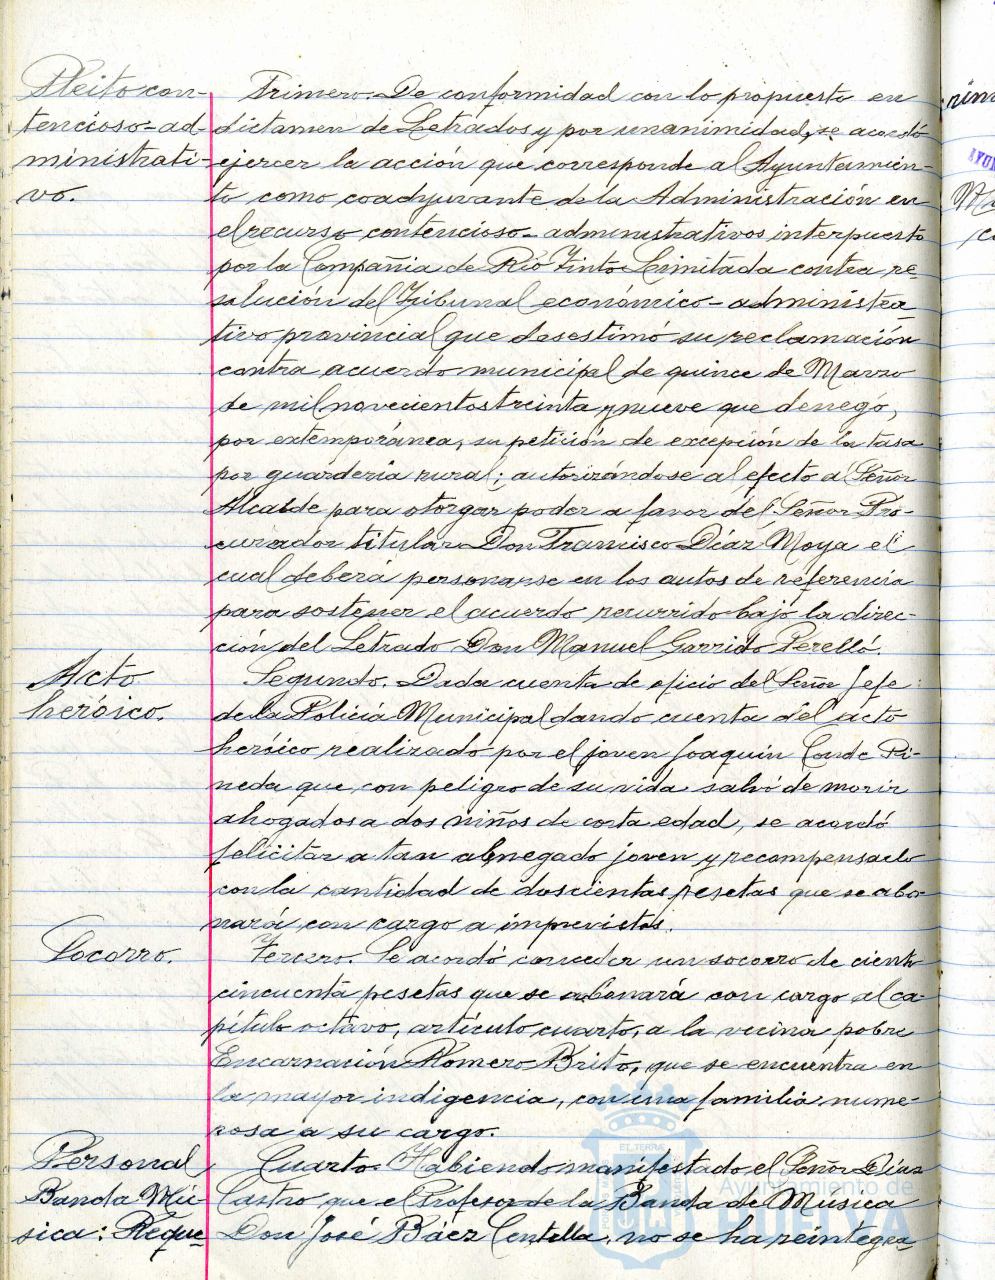 Pleito con-
tencioso-ad-
ministrati-
vo.
Primero. De conformidad con lo propuesto en
dictamen de Letrados y por unanimidad, se acordó
ejercer la acción que corresponde al Ayuntamien-
to como coadyuvante de la Administración en
el recurso contencioso-administrativos interpuesto
por la Compañia de Rio Tinto Limitada contra re-
solución del Tribunal económico-administra-
tivo provincial que desestimó su reclamación
contra acuerdo municipal de quince de Marzo
de mil novecientos treinta y nueve que denegó,
por extemporánea, su petición de excepción de la tasa
por guardería rural; autorizándose al efecto al Señor
Alcalde para otorgar poder a favor del Señor Pro-
curador titular Don Francisco Díaz Moya el
cual deberá personarse en los autos de referencia
para sostener el acuerdo recurrido bajo la direc-
ción del Letrado Don Manuel Garrido Perelló.
Acto
heróico.
Segundo. Dada cuenta de oficio del Señor Jefe
de la Policia Municipal dando cuenta del acto
heróico realizado por el joven Joaquin Conde Pi-
neda que, con peligro de su vida salvó de morir
ahogados a dos niños de corta edad, se acordó
felicitar a tan abnegado joven y recompensarlo
con la cantidad de doscientas pesetas que se abo-
nará con cargo a imprevistos.
Socorro.
Tercero. Se acordó conceder un socorro de ciento
cincuenta pesetas que se abonará con cargo al ca-
pítulo octavo, artículo cuarto, a la vecina pobre
Encarnación Romero Brito, que se encuentra en
la mayor indigencia, con una familia nume-
rosa a su cargo.
Personal
Banda Mú-
sica: Reque
Cuarto. Habiendo manifestado el Señor Díaz
Castro que el Profesor de la Banda de Música
Don José Báez Centella, no se ha reintegra-
Ayuntamiento de
HUELVA